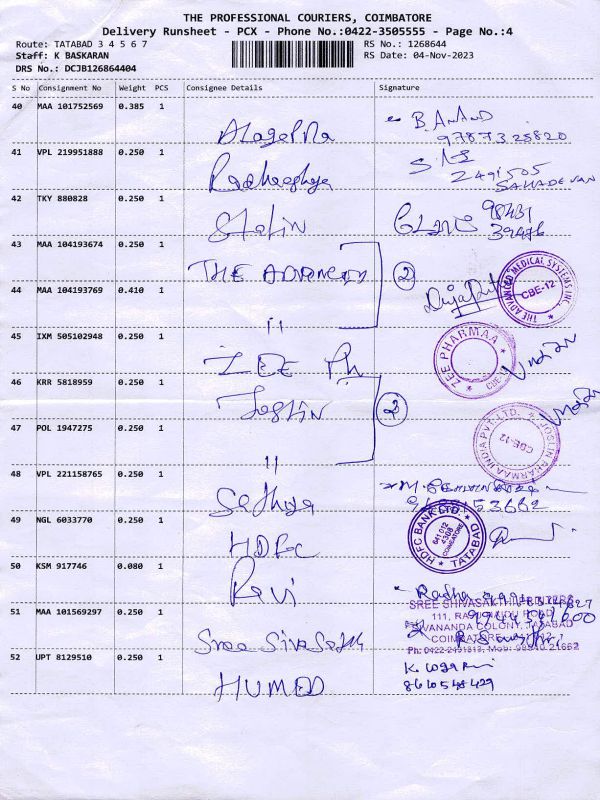 THE PROFESSIONAL COURIERS, COIMBATORE
Delivery Runsheet - PCX - Phone No.:0422-3505555 - Page No.:4
Route: TATABAD 3 4 5 6 7 RS No.: 1268644
Staff: K BASKARAN RS Date: 04-Nov-2023
DRS No.: DCJB126864404
S No Consignment No Weight PCS Consignee Details Signature
40 MAA 101752569 0.385 1 B. ANAND
9787325820
41 VPL 219951888 0.250 1
2491505
SAHADEVAN
42 TKY 880828 0.250 1 Stalin 98431
39476
43 MAA 104193674 0.250 1 THE ADVANCED 2
THE ADVANCED MEDICAL SYSTEMS INC. CBE-12
44 MAA 104193769 0.410 1 "
45 IXM 505102948 0.250 1 ZEE Ph
ZEE PHARMAA CBE
46 KRR 5818959 0.250 1 Joslin 2
JOSLIN PHARMA INDIA PVT. LTD. CBE-12
47 POL 1947275 0.250 1 "
48 VPL 221158765 0.250 1 Sathya
49 NGL 6033770 0.250 1 HDFC
HDFC BANK LTD. TATABAD 641 012 COIMBATORE
50 KSM 917746 0.080 1 Ravi Radha
SREE SHIVASAKTHI
COLONY, TATABAD
51 MAA 101569297 0.250 1 Sree Siva Sakthi
52 UPT 8129510 0.250 1